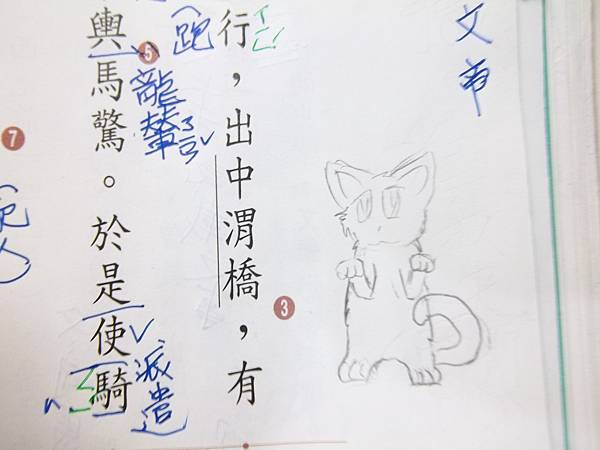 文帝
行，出中渭橋，有
3
(跑
5
龍輦ㄋㄧㄢˇ
派遣
輿馬驚。於是使騎
7